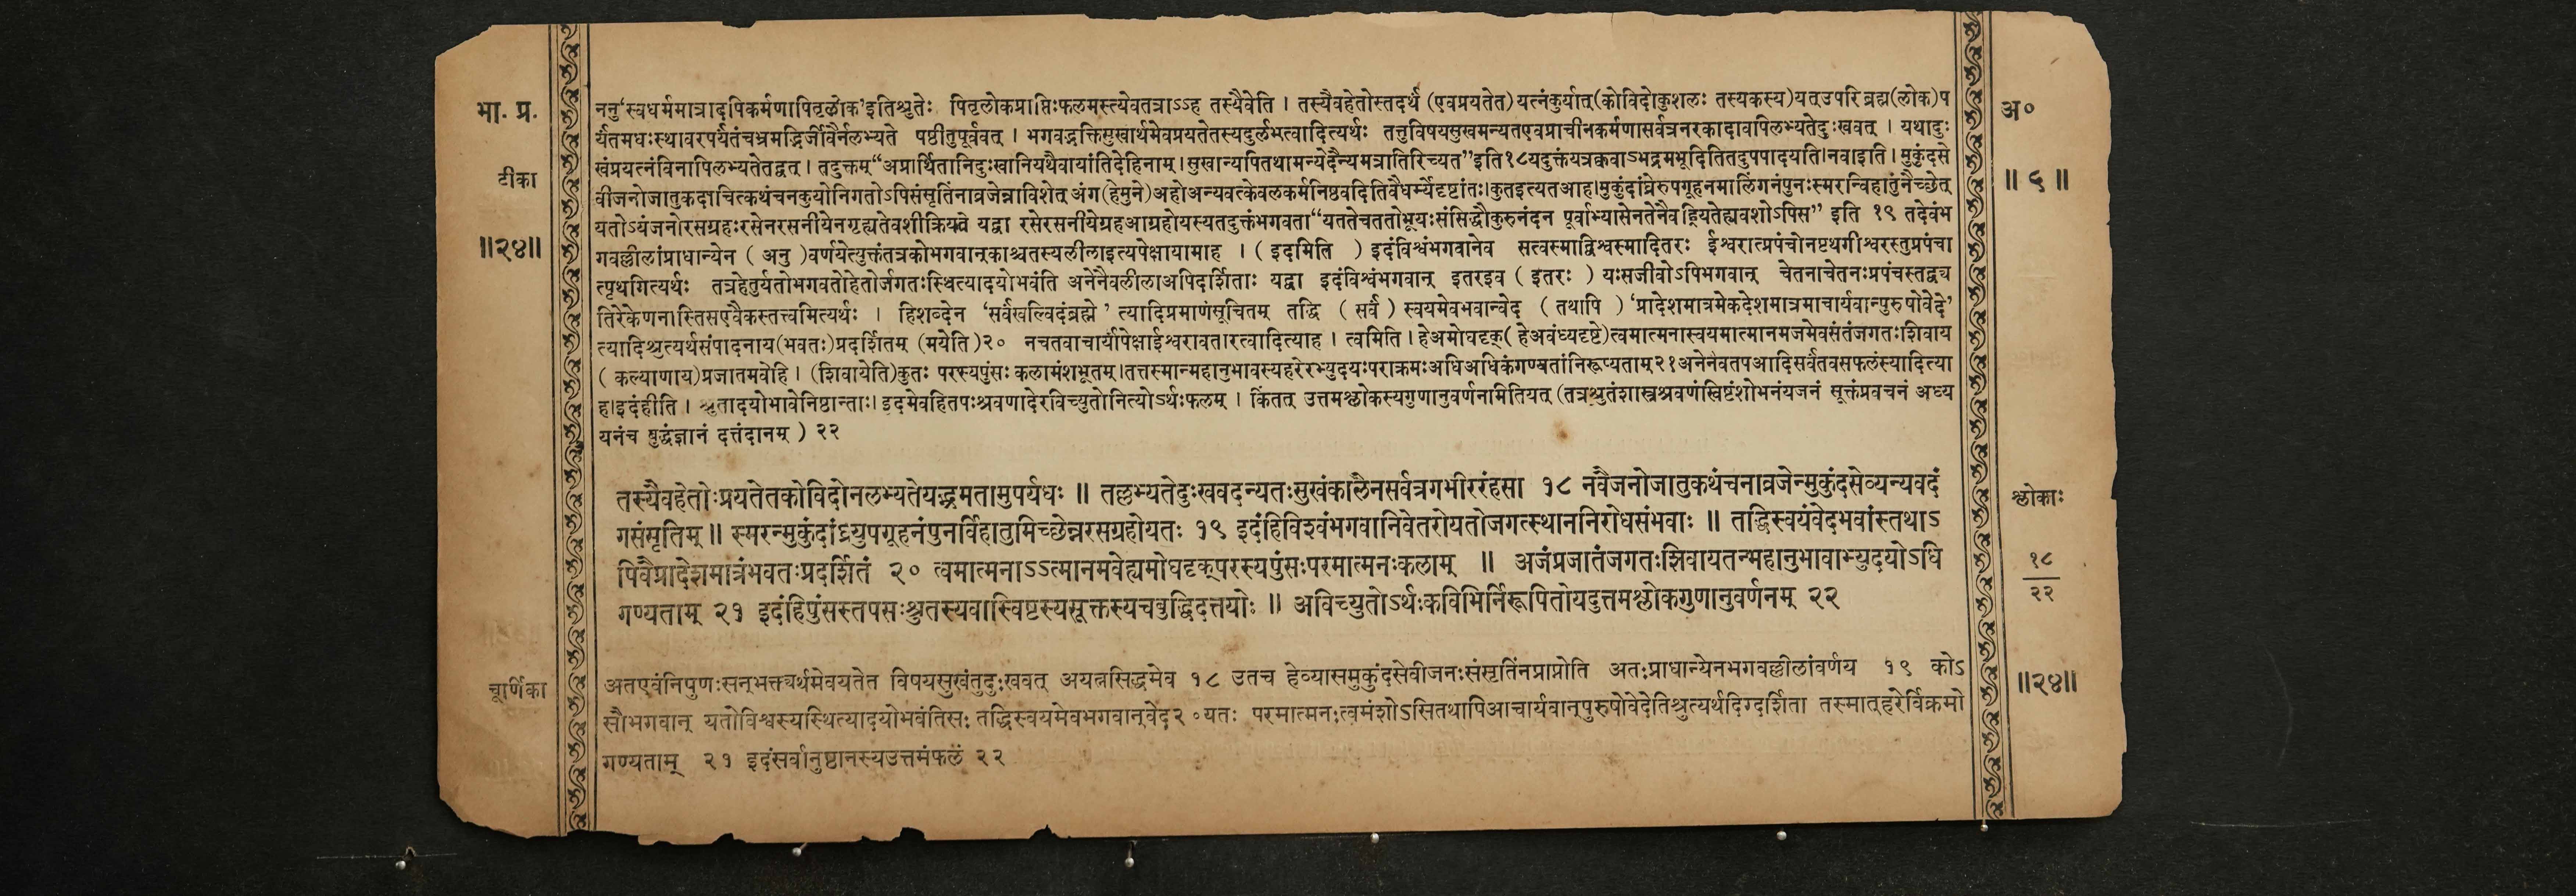 भा. प्र.
टीका
॥२४॥
ननु‘स्वधर्ममात्रादपिकर्मणापितृलोक’इतिश्रुतेः पितृलोकप्राप्तिःफलमस्त्येवतत्राऽऽह तस्यैवेति । तस्यैवहेतोस्तदर्थं (एवप्रयतेत) यत्नंकुर्यात्(कोविदोकुशलः तस्यकस्य)यत्उपरि ब्रह्म(लोक)प
र्यंतमधःस्थावरपर्यंतंचभ्रमद्भिर्जीवैर्नलभ्यते षष्ठीतुपूर्ववत् । भगवद्भक्तिसुखार्थमेवप्रयतेतस्यदुर्लभत्वादित्यर्थः तत्तुविषयसुखमन्यतएवप्राचीनकर्मणासर्वत्रनरकादावपिलभ्यतेदुःखवत् । यथादुः
खंप्रयत्नंविनापिलभ्यतेतद्वत् । तदुक्तम्“अप्रार्थितानिदुःखानियथैवायांतिदेहिनाम्।सुखान्यपितथामन्येदैन्यमत्रातिरिच्यत”इति१८यदुक्तंयत्रक्कवाऽभद्रमभूदितितदुपपादयति।नवाइति।मुकुंदसे
वीजनोजातुकदाचित्कथंचनकुयोनिगतोऽपिसंसृतिंनाव्रजेन्नाविशेत् अंग(हेमुने)अहोअन्यवत्केवलकर्मनिष्ठवदितिवैधर्म्येदृष्टांतः।कुतइत्यतआह।मुकुंदांघ्रेरुपगूहनमालिंगनंपुनःस्मरन्विहातुंनैच्छेत्
यतोऽयंजनोरसग्रहःरसेनरसनीयेनगृह्यतेवशीक्रियते यद्वा रसेरसनीयेग्रहआग्रहोयस्यतदुक्तंभगवता“यततेचततोभूयःसंसिद्धौकुरुनंदन पूर्वाभ्यासेनतेनैवह्रियतेह्यवशोऽपिस” इति १९ तदेवंभ
गवल्लीलांप्राधान्येन ( अनु )वर्णयेत्युक्तंतत्रकोभगवान्काश्चतस्यलीलाइत्यपेक्षायामाह । ( इदमिति ) इदंविश्वंभगवानेव सत्वस्माद्विश्वस्मादितरः ईश्वरात्प्रपंचोनपृथगीश्वरस्तुप्रपंचा
त्पृथगित्यर्थः तत्रहेतुर्यतोभगवतोहेतोर्जगतःस्थित्यादयोभवंति अनेनैवलीलाअपिदर्शिताः यद्वा इदंविश्वंभगवान् इतरइव ( इतरः ) यःसजीवोऽपिभगवान् चेतनाचेतनःप्रपंचस्तद्व्य
तिरेकेणनास्तिसएवैकस्तत्त्वमित्यर्थः । हिशब्देन ‘सर्वंखल्विदंब्रह्मे ’ त्यादिप्रमाणंसूचितम् तद्धि ( सर्वं ) स्वयमेवभवान्वेद ( तथापि ) ‘प्रादेशमात्रमेकदेशमात्रमाचार्यवान्पुरुषोवेदे’
त्यादिश्रुत्यर्थसंपादनाय(भवतः)प्रदर्शितम् (मयेति)२० नचतवाचार्यापेक्षाईश्वरावतारत्वादित्याह । त्वमिति । हेअमोघदृक्(हेअवंध्यदृष्टे)त्वमात्मनास्वयमात्मानमजमेवसंतंजगतःशिवाय
( कल्याणाय)प्रजातमवेहि । (शिवायेति)कुतः परस्यपुंसः कलामंशभूतम्।तत्तस्मान्महानुभावस्यहरेरभ्युदयःपराक्रमःअधिअधिकंगण्यतांनिरूप्यताम्२१अनेनैवतपआदिसर्वंतवसफलंस्यादित्या
ह।इदंहीति । श्रुतादयोभावेनिष्ठान्ताः।इदमेवहितपःश्रवणादेरविच्युतोनित्योऽर्थःफलम् । किंतत् उत्तमश्लोकस्यगुणानुवर्णनामितियत् (तत्रश्रुतंशास्त्रश्रवणंस्विष्टंशोभनंयजनं सूक्तंप्रवचनं अध्य
यनंच बुद्धंज्ञानं दत्तंदानम् ) २२
तस्यैवहेतोःप्रयतेतकोविदोनलभ्यतेयद्भ्रमतामुपर्यधः ॥ तल्लभ्यतेदुःखवदन्यतःसुखंकालेनसर्वत्रगभीररंहसा १८ नवैजनोजातुकथंचनाव्रजेन्मुकुंदसेव्यन्यवदं
गसंसृतिम् ॥ स्मरन्मुकुंदांघ्र्युपगूहनंपुनर्विहातुमिच्छेन्नरसग्रहोयतः १९ इदंहिविश्वंभगवानिवेतरोयतोजगत्स्थाननिरोधसंभवाः ॥ तद्धिस्वयंवेदभवांस्तथाऽ
पिवैप्रादेशमात्रंभवतःप्रदर्शितं २० त्वमात्मनाऽऽत्मानमवेह्यमोघदृक्परस्यपुंसःपरमात्मनःकलाम् ॥ अजंप्रजातंजगतःशिवायतन्महानुभावाभ्युदयोऽधि
गण्यताम् २१ इदंहिपुंसस्तपसःश्रुतस्यवास्विष्टस्यसूक्तस्यचबुद्धिदत्तयोः ॥ अविच्युतोऽर्थःकविभिर्निरूपितोयदुत्तमश्लोकगुणानुवर्णनम् २२
चूर्णिका
अतएवंनिपुणःसन्भक्त्यर्थमेवयतेत विषयसुखंतुदुःखवत् अयत्नसिद्धमेव १८ उतच हेव्यासमुकुंदसेवीजनःसंसृतिंनप्राप्नोति अतःप्राधान्येनभगवल्लीलांवर्णय १९ कोऽ
सौभगवान् यतोविश्वस्यस्थित्यादयोभवंतिसः तद्धिस्वयमेवभगवान्वेद२०यतः परमात्मनःत्वमंशोऽसितथापिआचार्यवान्पुरुषोवेदेतिश्रुत्यर्थदिग्दर्शिता तस्मात्हरेर्विक्रमो
गण्यताम् २१ इदंसर्वानुष्ठानस्यउत्तमंफलं २२
अ०
॥ ५ ॥
श्लोकाः
१८
२२
॥२४॥